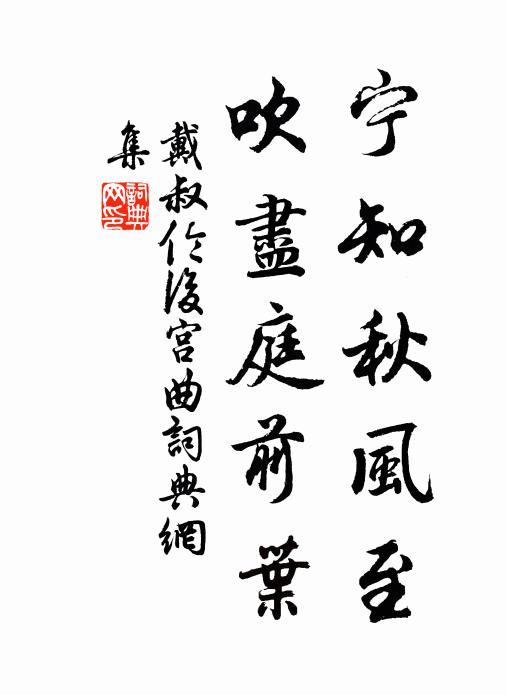 宁知秋風至
吹盡庭前葉
戴叔伦後宫曲詞典網
集
詞典网印